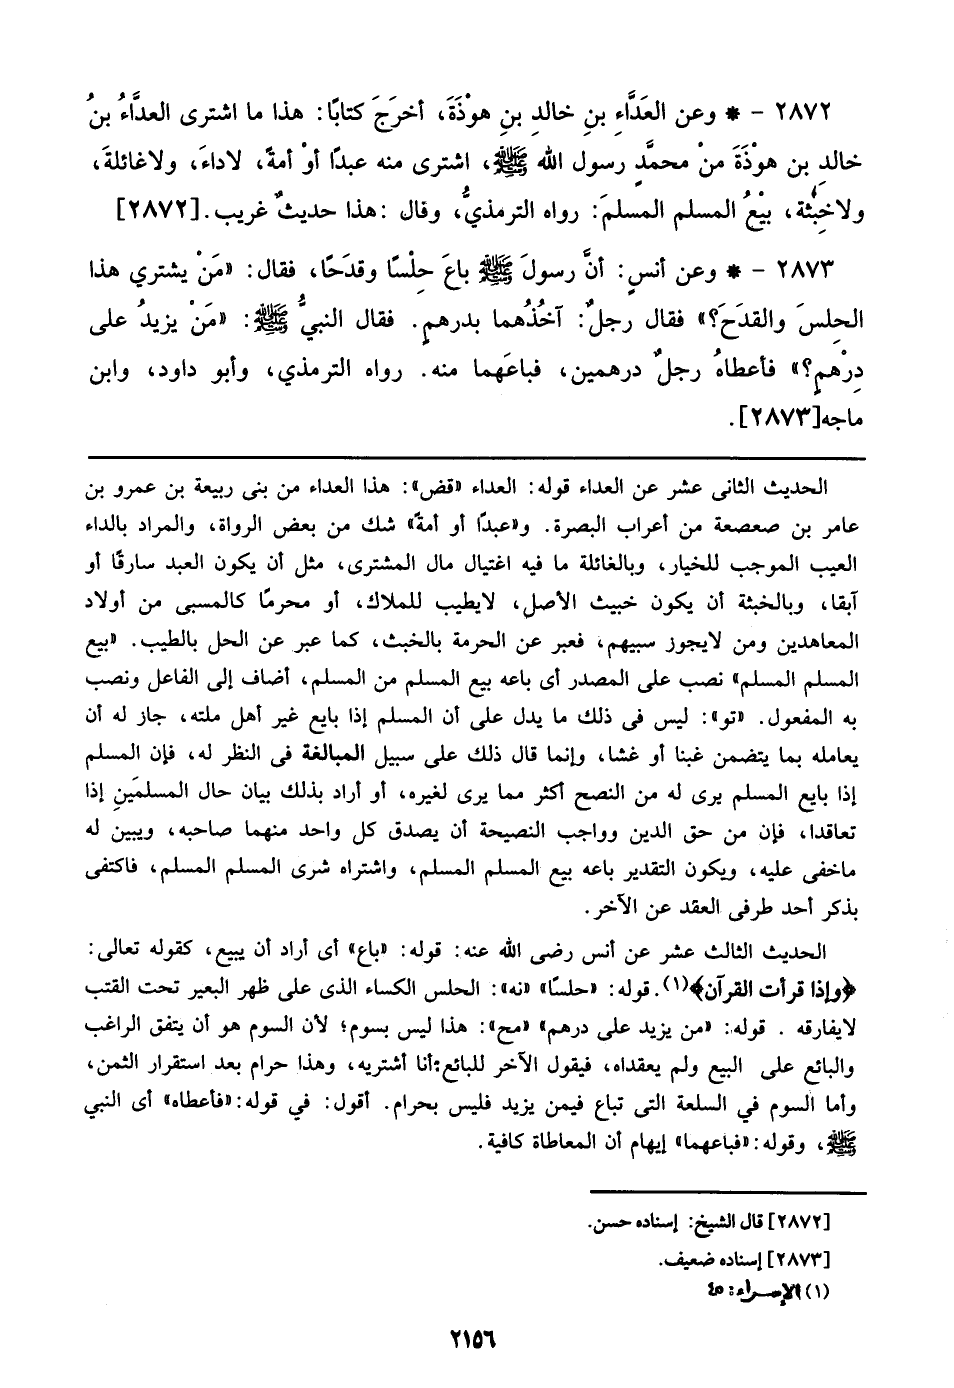 ٢٨٧٢ – * وعن العَدَّاءِ بنِ خالدِ بنِ هوْذَةَ، أخرَجَ كتابًا: هذا ما اشترى العدَّاءُ بنُ
خالدِ بن هوْذَةَ منْ محمَّدٍ رسول الله ﷺ، اشترى منه عبدًا أوْ أمةً، لاداءَ، ولاغائلةَ،
ولاخِبْثةَ، بيْعُ المسلم المسلمَ: رواه الترمذيُّ، وقال :هذا حديثٌ غريب.[٢٨٧٢]
٢٨٧٣ – * وعن أنسٍ: أنَّ رسولَ ﷺ باعَ حِلْسًا وقدَحًا، فقال: «مَنْ يشتري هذا
الحِلسَ والقدَحَ؟» فقال رجلٌ: آخُذُهما بدرهمٍ. فقال النبيُّ ﷺ: «مَنْ يزيدُ على
دِرْهمٍ؟» فأعطاهُ رجلٌ درهمين، فباعَهما منه. رواه الترمذي، وأبو داود، وابن
ماجه[٢٨٧٣].
الحديث الثانى عشر عن العداء قوله: العداء «قض»: هذا العداء من بنى ربيعة بن عمرو بن
عامر بن صعصعة من أعراب البصرة. و«عبدًا أو أمةً» شك من بعض الرواة، والمراد بالداء
العيب الموجب للخيار، وبالغائلة ما فيه اغتيال مال المشترى، مثل أن يكون العبد سارقًا أو
آبقا، وبالخبثة أن يكون خبيث الأصل، لايطيب للملاك، أو محرمًا كالمسبى من أولاد
المعاهدين ومن لايجوز سبيهم، فعبر عن الحرمة بالخبث، كما عبر عن الحل بالطيب. «بيع
المسلم المسلم» نصب على المصدر أى باعه بيع المسلم من المسلم، أضاف إلى الفاعل ونصب
به المفعول. «تو»: ليس فى ذلك ما يدل على أن المسلم إذا بايع غير أهل ملته، جاز له أن
يعامله بما يتضمن غبنا أو غشا، وإنما قال ذلك على سبيل المبالغة فى النظر له، فإن المسلم
إذا بايع المسلم يرى له من النصح أكثر مما يرى لغيره، أو أراد بذلك بيان حال المسلمَينِ إذا
تعاقدا، فإن من حق الدين وواجب النصيحة أن يصدق كل واحد منهما صاحبه، ويبين له
ماخفى عليه، ويكون التقدير باعه بيع المسلم المسلم، واشتراه شرى المسلم المسلم، فاكتفى
بذكر أحد طرفى العقد عن الآخر.
الحديث الثالث عشر عن أنس رضى الله عنه: قوله: «باع» أى أراد أن يبيع، كقوله تعالى:
﴿وإذا قرأت القرآن﴾(١). قوله: «حلسًا» «نه»: الحلس الكساء الذى على ظهر البعير تحت القتب
لايفارقه . قوله: «من يزيد على درهم» «مح»: هذا ليس بسوم؛ لأن السوم هو أن يتفق الراغب
والبائع على البيع ولم يعقداه، فيقول الآخر للبائع:أنا أشتريه، وهذا حرام بعد استقرار الثمن،
وأما السوم في السلعة التى تباع فيمن يزيد فليس بحرام. أقول: في قوله:«فأعطاه» أى النبي
ﷺ، وقوله:«فباعهما» إيهام أن المعاطاة كافية.
[٢٨٧٢] قال الشيخ: إسناده حسن.
[٢٨٧٣] إسناده ضعيف.
(١) الإسراء: ٤٥
٢١٥٦